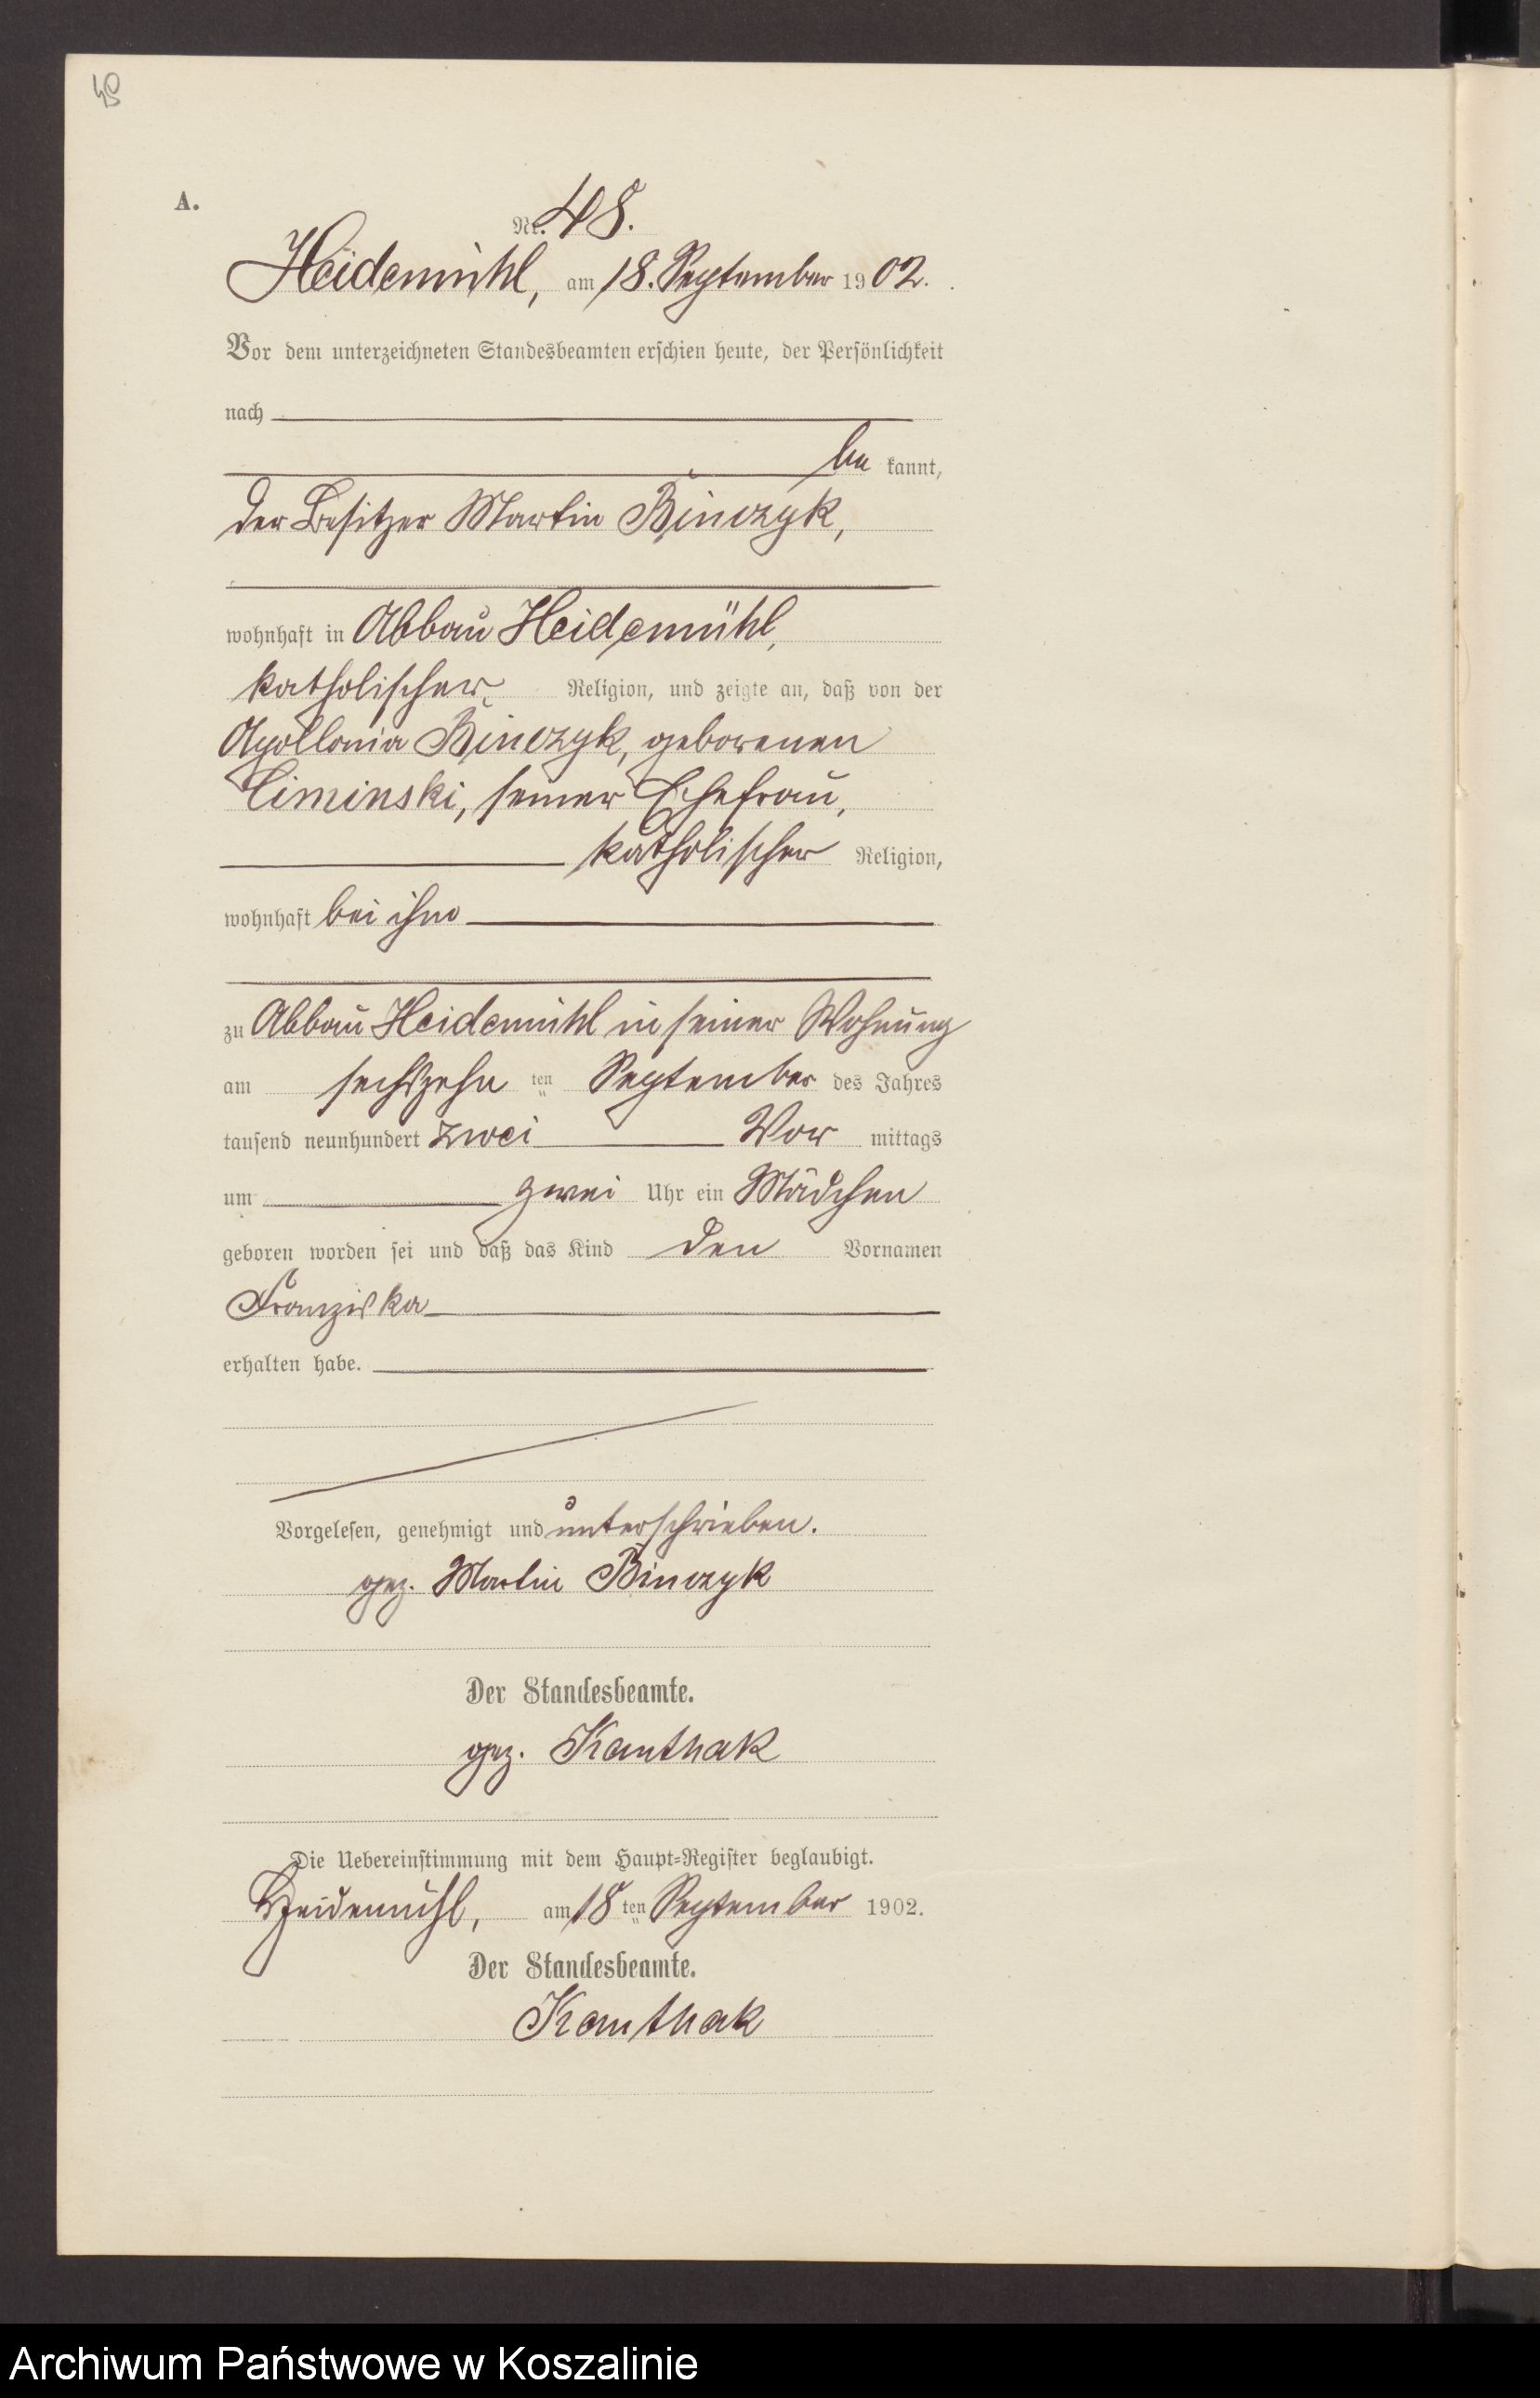 49
A.
Nr. 48.
Heidemühl, am 18. September 1902.
Vor dem unterzeichneten Standesbeamten erschien heute, der Persönlichkeit
nach
be kannt,
der Besitzer Martin Binczyk,
wohnhaft in Abbau Heidemühl,
katholischer Religion, und zeigte an, daß von der
Apollonia Binczyk, geborenen
Ciminski, seiner Ehefrau,
katholischer Religion,
wohnhaft bei ihm
zu Abbau Heidemühl in seiner Wohnung
am sechszehn ten September des Jahres
tausend neunhundert zwei Vor mittags
um zwei Uhr ein Mädchen
geboren worden sei und daß das Kind den Vornamen
Franziska
erhalten habe.
Vorgelesen, genehmigt und unterschrieben.
gez. Martin Binczyk
Der Standesbeamte.
gez. Kanthak
Die Uebereinstimmung mit dem Haupt-Register beglaubigt.
Heidemühl, am 18 ten September 1902.
Der Standesbeamte.
Kanthak
Archiwum Państwowe w Koszalinie